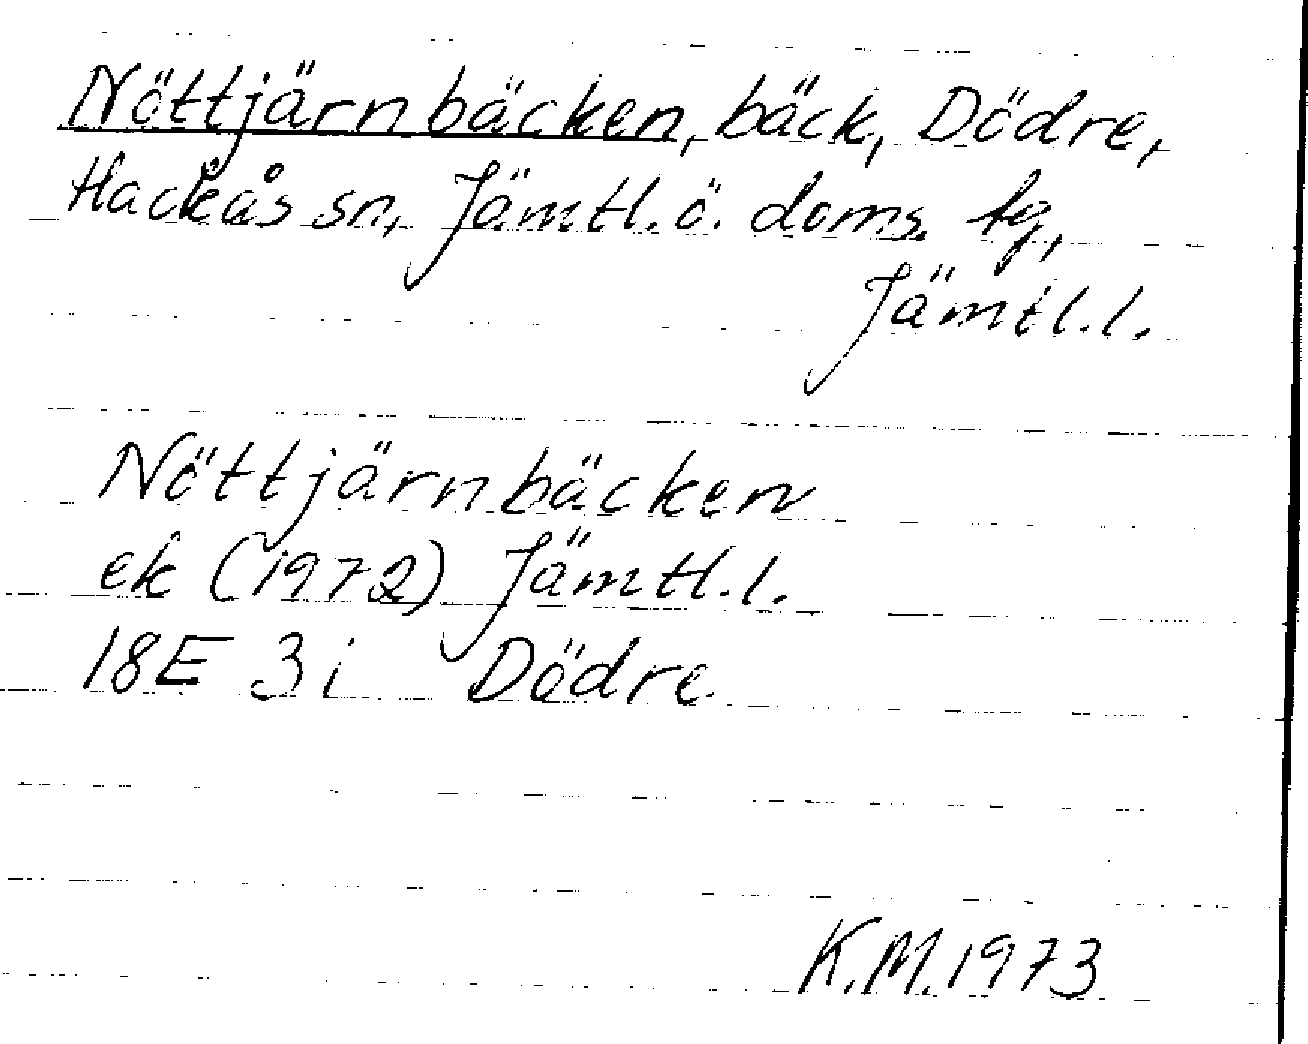 Nöttjärnbäcken, bäck, Dödre,
Hackås sn, Jämtl. ö. doms. tg,
Jämtl. l.
Nöttjärnbäcken
ek (1972) Jämtl. l.
18E 3i Dödre
K.M. 1973